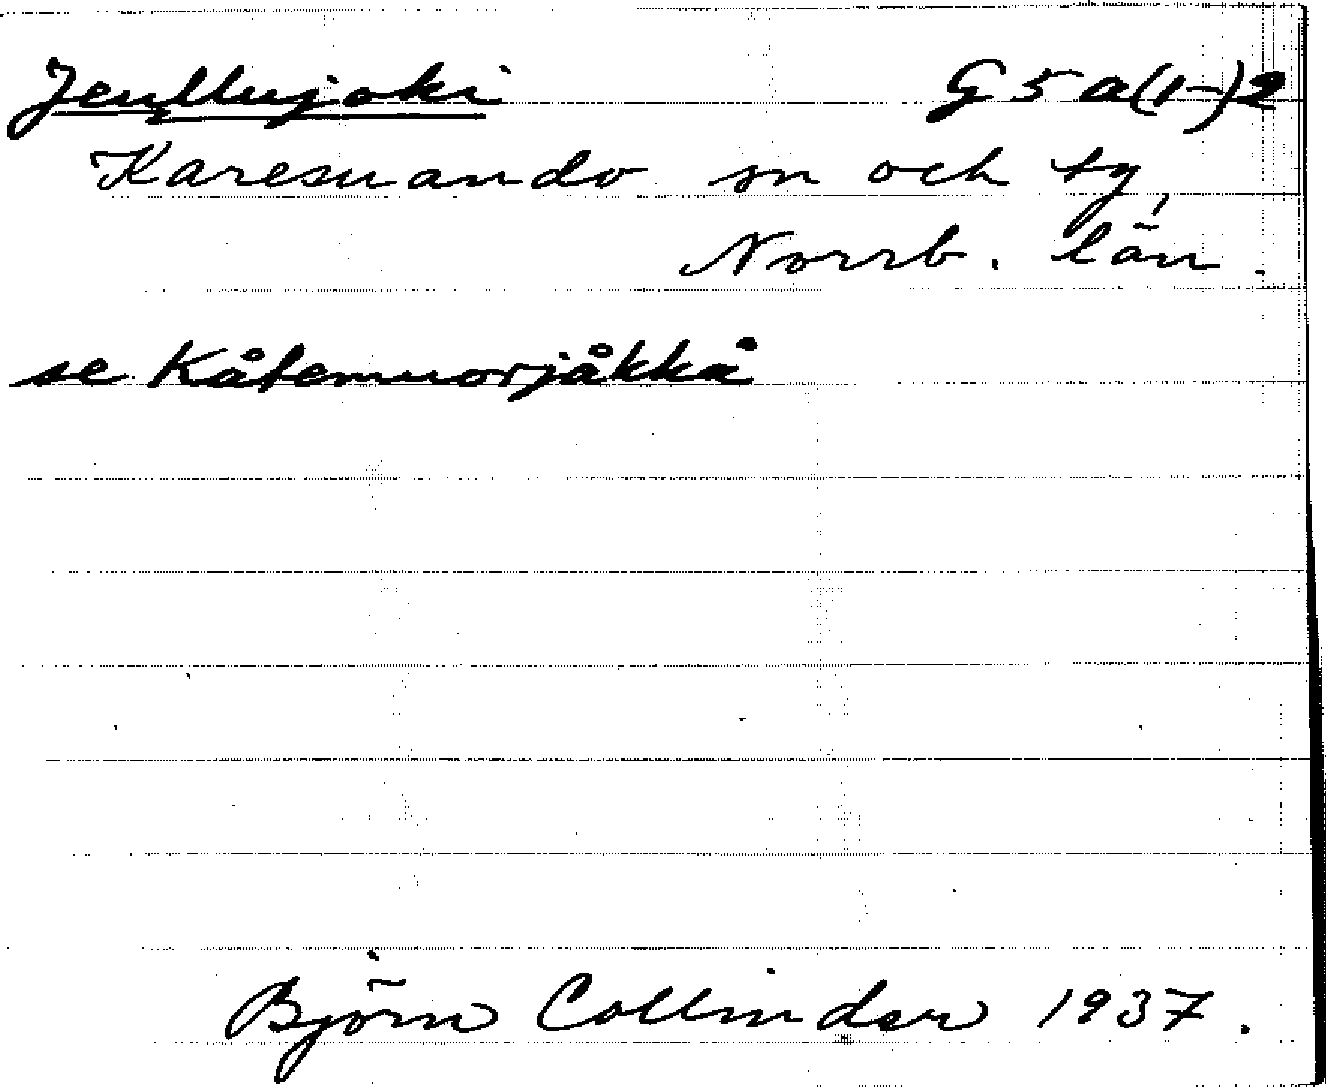 Jenllujoki G5a(1-)2
Karesuando sn och tg,
Norrb. län.
se Kåtemuorjåkkå
Björn Collinder 1937.